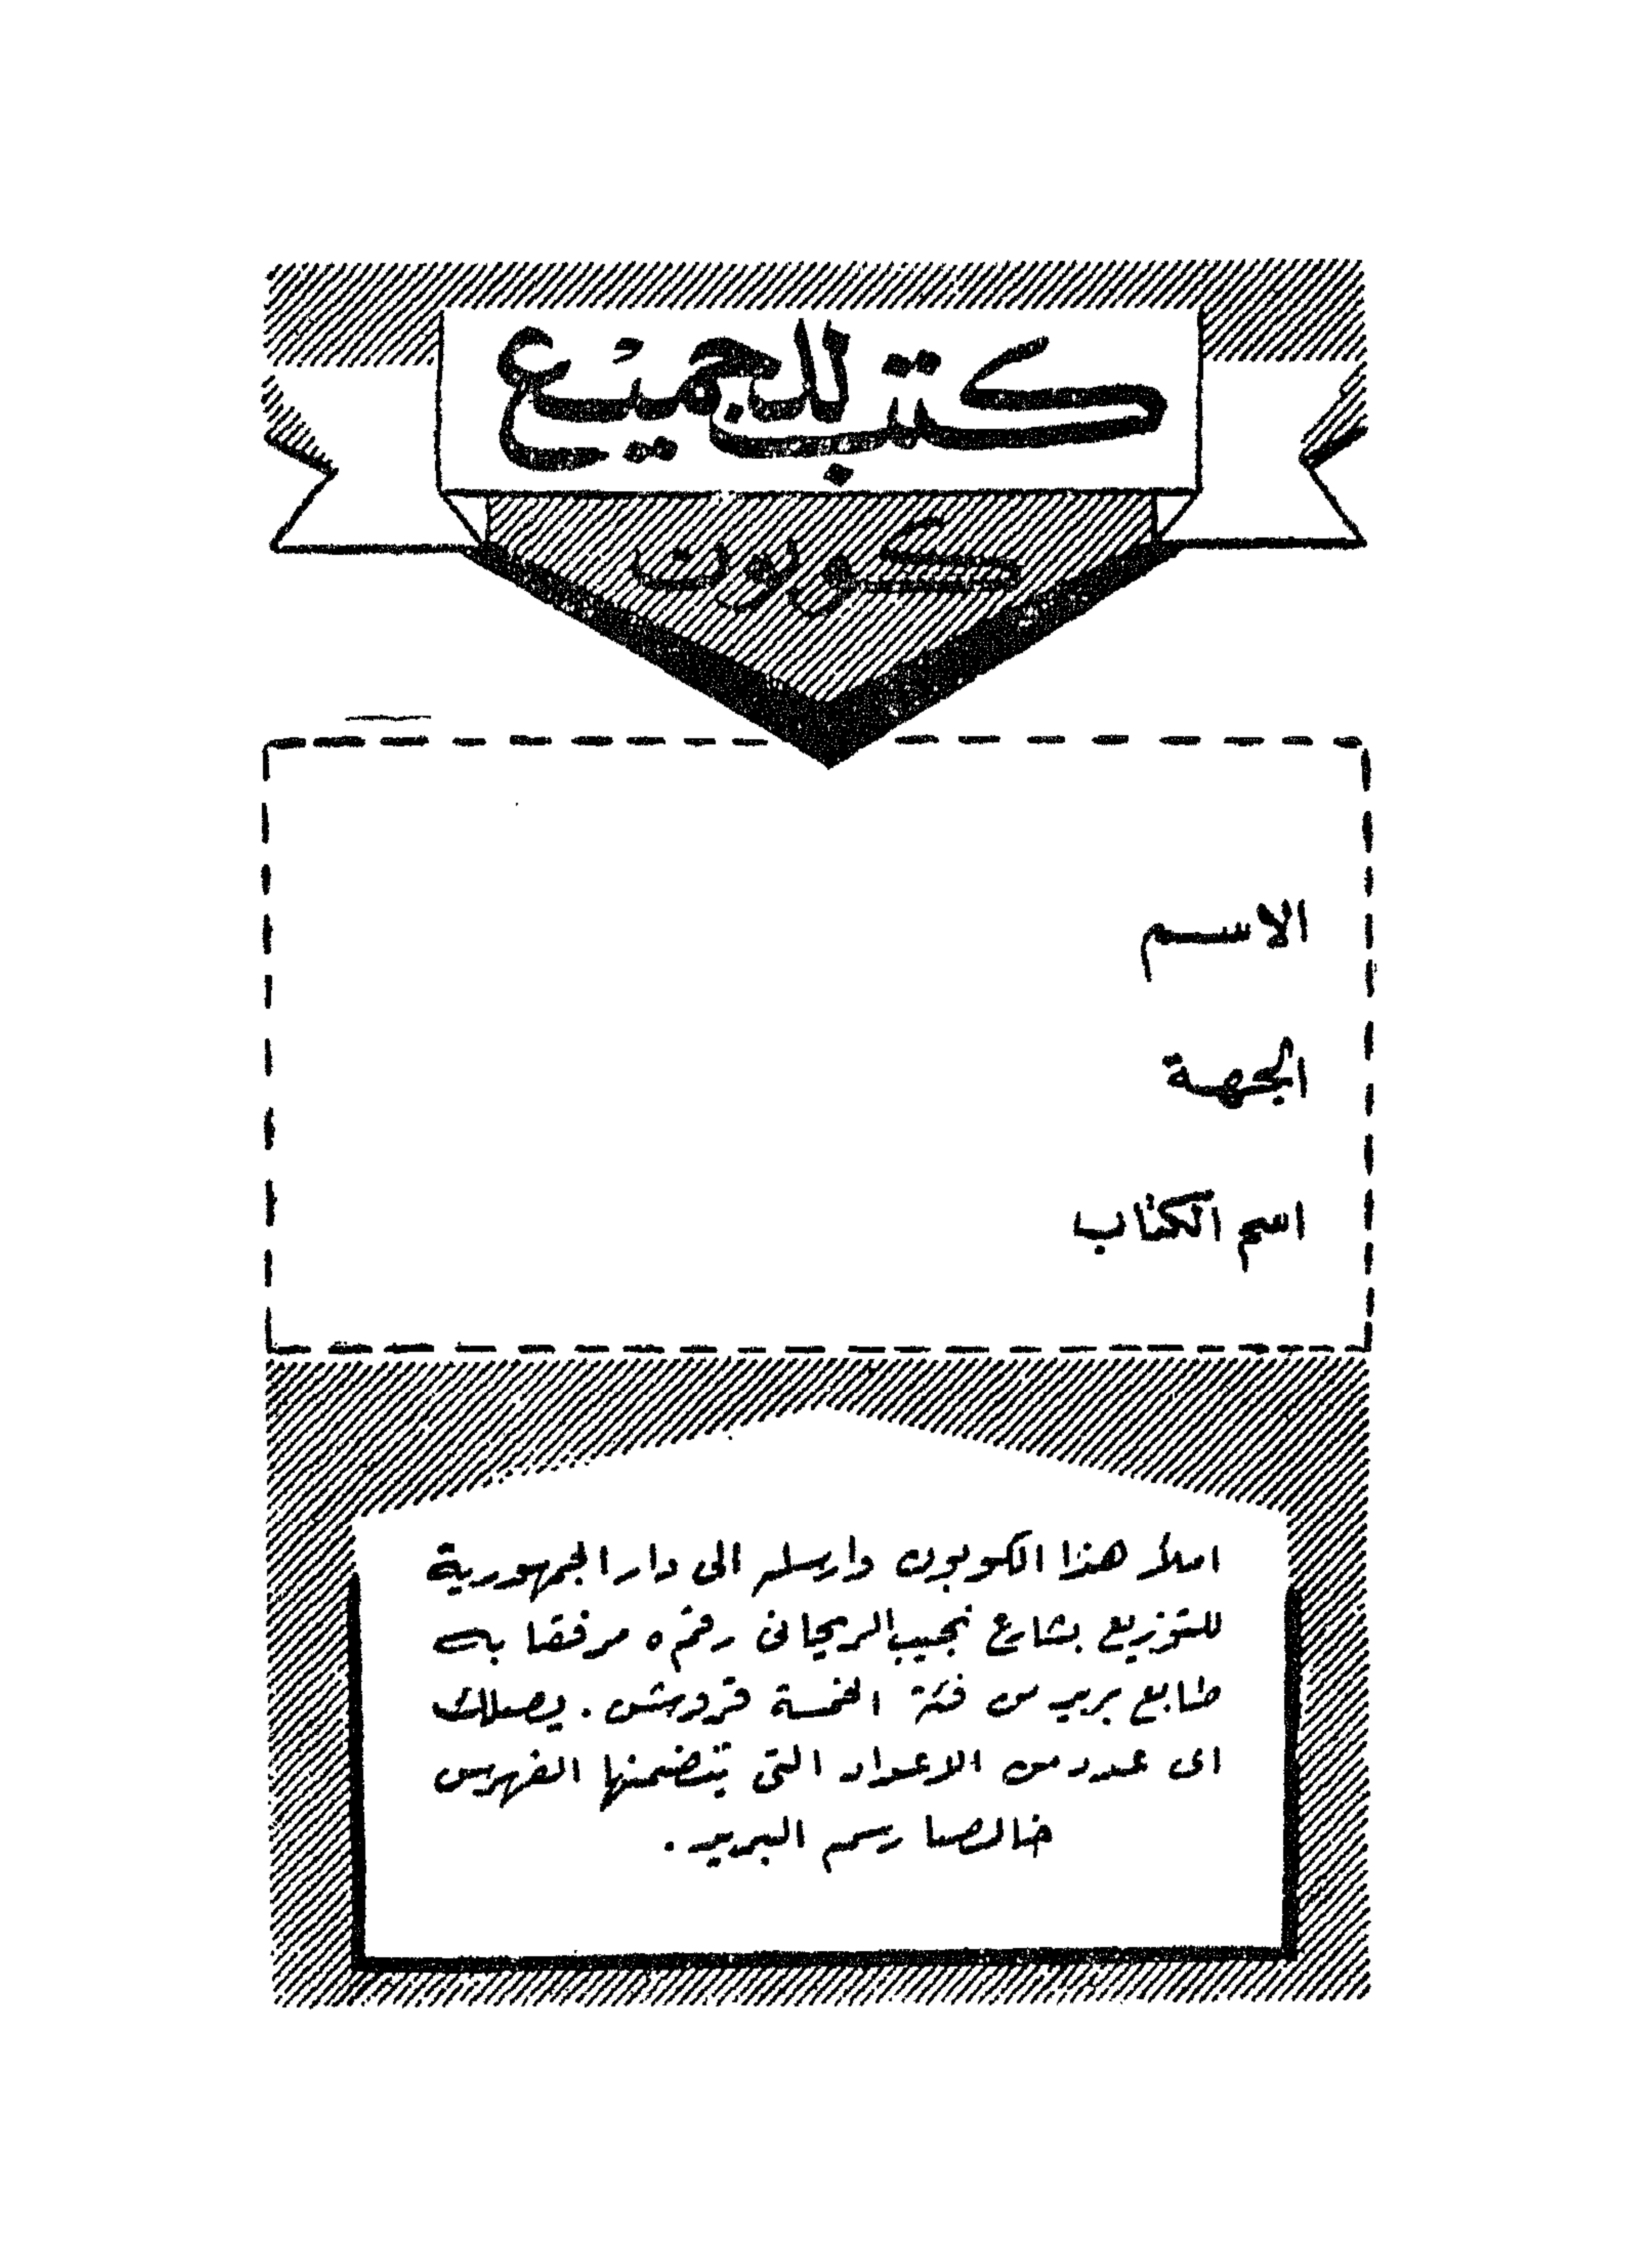 كتب للجميع
كوبون
الاسم
الجهة
اسم الكتاب
املأ هذا الكوبون وارسله الى دار الجمهورية
للتوزيع بشارع نجيب الريحانى رقم ٥ مرفقا به
طابع بريد من فئة الخمسة قروش . يصلك
اى عدد من الاعداد التى يتضمنها الفهرس
خالصا رسم البريد .